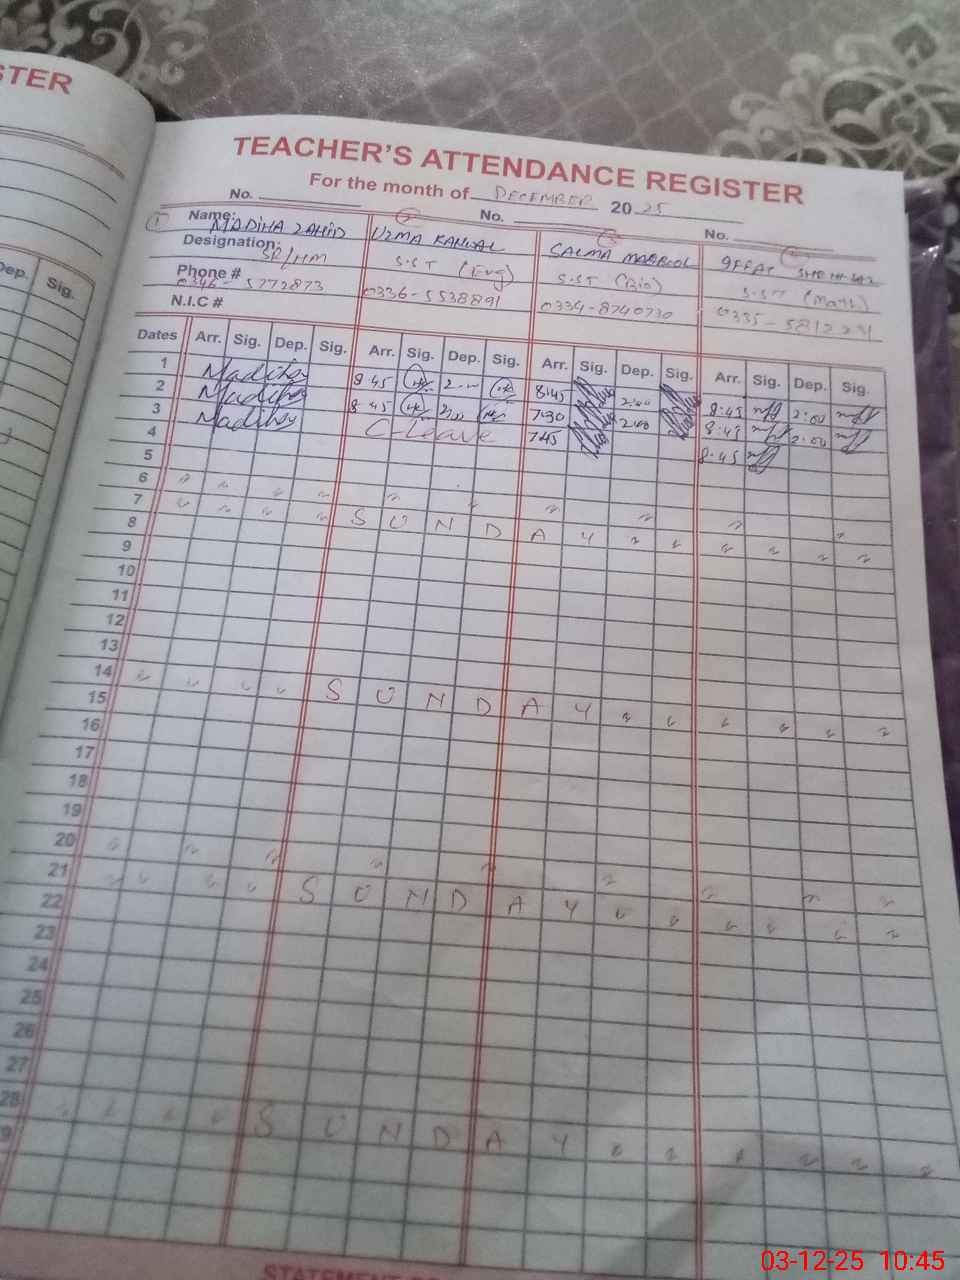 STER
TEACHER'S ATTENDANCE REGISTER
For the month of DECEMBER 20 25
No. No. No.
Name: MADIHA ZAHID UZMA KANWAL SALMA MAQBOOL
Designation: SR/HM S.ST (Eng) S.ST (Bio) S.ST (Math)
Phone # 0346-5772873 0336-5538891 0334-8740730
N.I.C #
Dep. Sig.
Dates Arr. Sig. Dep. Sig. Arr. Sig. Dep. Sig. Arr. Sig. Dep. Sig. Arr. Sig. Dep. Sig.
1 Madiha 8 45 8:45 2:00 8:45 2:00
2 Madiha 8 45 7:30 2:00 8:45 2:00
3 Madiha C-Leave 7:45 8:45
4
5
6
7 S U N D A Y
8
9
10
11
12
13
14 S U N D A Y
15
16
17
18
19
20
21 S U N D A Y
22
23
24
25
26
27
28 S U N D A Y
9
03-12-25 10:45